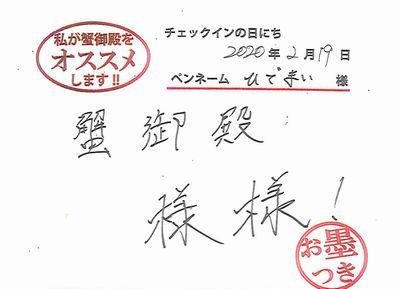 私が蟹御殿を
オススメ
します!!
チェックインの日にち
2020年2月19日
ペンネーム ひでまい 様
蟹御殿
様様!
お墨
つき